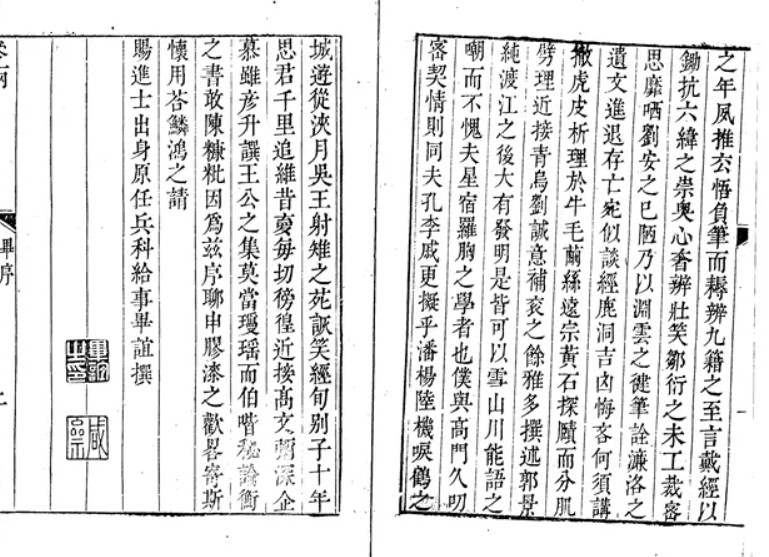 之年夙推玄悟負筆而耨辨九籍之至言戴經以
鋤抗六緯之崇奥心奢辨壯笑鄒衍之未工裁密
思靡哂劉安之已陋乃以淵雲之健筆詮濂洛之
遺文進退存亡宛似談經鹿洞吉凶悔吝何須講
撤虎皮析理於牛毛繭絲遠宗黃石探賾而分肌
劈理近接青烏劉誠意補衮之餘雅多撰述郭景
純渡江之後大有發明是皆可以雪山川能語之
嘲而不愧夫星宿羅胸之學者也僕與高門久叨
密契情則同夫孔李戚更擬乎潘楊陸機唳鶴之
城遊從浹月吳王射雉之苑訴笑經旬别子十年
思君千里追維昔夏每切徬徨近接高文彌深企
慕雖彥升譔王公之集莫當瓊瑶而伯喈秘論衡
之書敢陳糠粃因爲兹序聊申膠漆之歡畧寄斯
懷用荅鱗鴻之請
賜進士出身原任兵科給事畢誼撰
畢誼之印
畢序